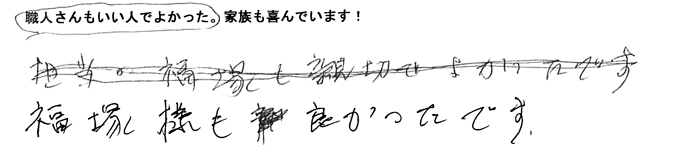 職人さんもいい人でよかった。家族も喜んでいます！
担当の福塚も親切でよかったです
福塚様も良かったです.